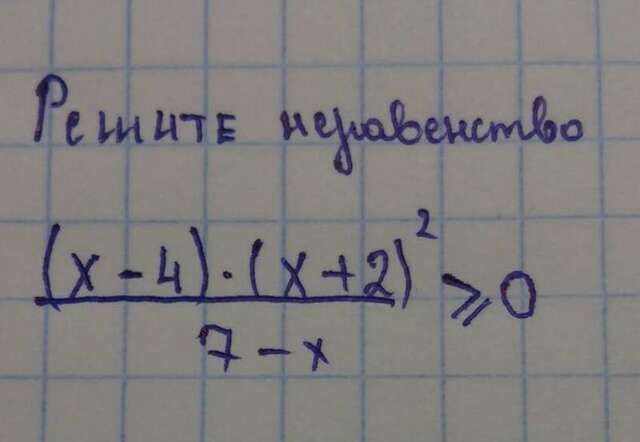 Решите неравенство
(x-4)·(x+2)²
7-x
≥0